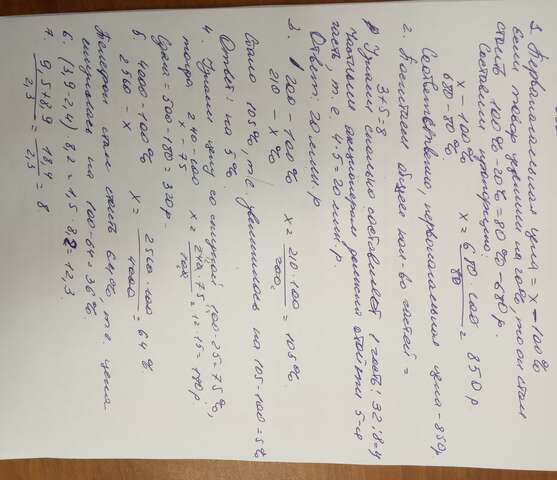 1. Первоначальная цена = x – 100%
если товар уценили на 20%, то он стал
стоить 100% - 20% = 80% - 680 р.
Составим пропорцию:
x – 100%
680 – 80%
x = 680 · 100 / 80 = 850 р
Соответственно, первоначальная цена – 850р
2. Посчитаем общее кол-во частей =
3+5=8
Узнаем, сколько составляет 1 часть: 32:8=4
Частным акционерам должно отойти 5-я
часть, т.е. 4·5=20 млн. р.
Ответ: 20 млн. р
3. 200 – 100%
210 – x%
x = 210·100 / 200 = 105%
Стало 105%, т.е. увеличилось на 105-100=5%
Ответ: на 5%.
4. Узнаем цену со скидкой 100-25=75%,
тогда 240-100
x - 75
x = 240·75 / 100 = 12·15=180р.
Сдача = 500-180 = 320р.
5. 4000 – 100%
2560 – x
x = 2560·100 / 4000 = 64%
Телефон стал стоить 64% т.е. цена
снизилась на 100-64=36%.
6. (3,9-2,4)·8,2=1,5·8,2=12,3
7. 9,5+8,9 / 2,3 = 18,4 / 2,3 = 8